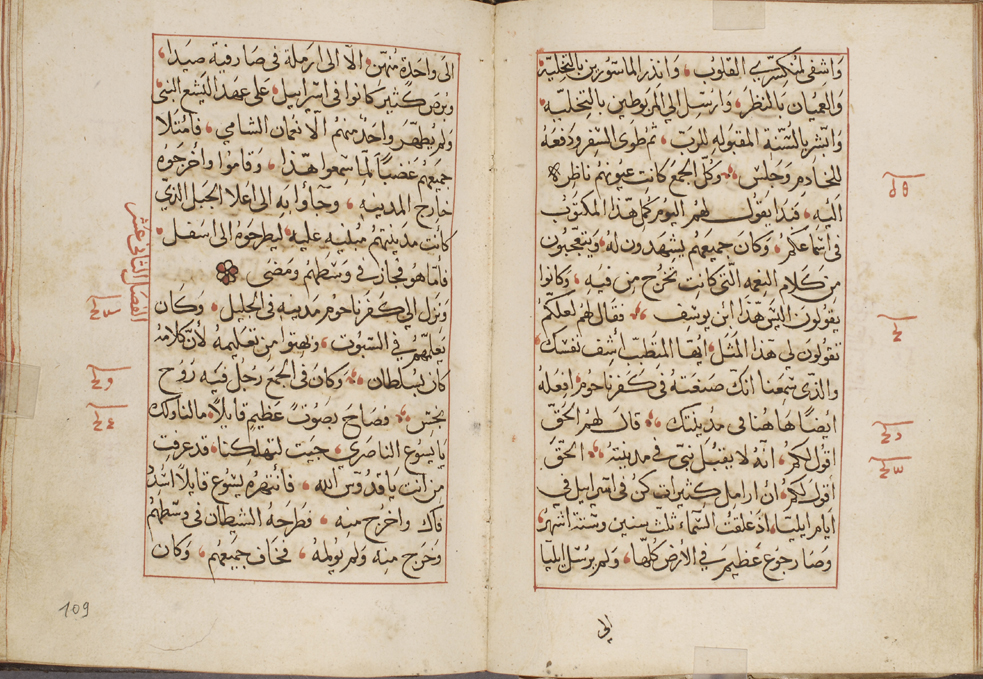 واشفى منكسري القلوب، وانذر الماسورين بالتخلية
والعميان بالنظر، وارسل الى المربوطين بالتخليه،
وابشر بالسنة المقبوله للرب، ثم طوى السفر ودفعه
للخادم وجلس، وكل الجمع كانت عيونهم ناظرة
اليه، فبدا يقول لهم اليوم كمل هذا المكتوب
في اسماعكم، وكان جميعهم يشهدون له، ويتعجبون
من كلام النعمه التي كانت تخرج من فيه، وكانوا
يقولون اليس هذا ابن يوسف، فقال لهم لعلكم
تقولون لى هذا المثل، ايها المتطبب اشف نفسك،
والذي سمعنا انك صنعته فى كفرناحوم، افعله
ايضًا هاهنا في مدينتك، قال لهم الحق
اقول لكم، انه لا يقبل نبي في مدينته، الحق
اقول لكم، ان ارامل كثيرات كن في اسرايل في
ايام ايليا، اذ غلقت السماء ثلث سنين وستة اشهر،
وصار جوع عظيم في الارض كلها، ولم يرسل ايليا
الى
الى واحدة منهن، الا الى ارملة في صارفية صيدا،
وبرص كثير كانوا في اسرايل، على عهد اليشع النبى
ولم يطهر واحد منهم الا نعمان الشامي، فامتلا
جميعهم غضبًا لما سمعوا هذا، وقاموا واخرجوه
خارج المدينه، وجاؤا به الى اعلا الجبل الذي
كانت مدينتهم مبنيه عليه، ليطرحوه الى اسفل،
فاما هو فجاز في وسطهم ومضى
الفصل الثاني عشر
ونزل الى كفرناحوم مدينه في الجليل، وكان
يعلمهم في السبوت، وبهتوا من تعليمه لان كلامه
كان بسلطان، وكان في الجمع رجل فيه روح
نجس، وصاح بصوت عظيم قايلاً، مالنا ولك
يا يسوع الناصري، جيت لتهلكنا، قد عرفت
من انت يا قدوس الله، فانتهره يسوع قايلاً اسدد
فاك واخرج منه، فطرحه الشيطان في وسطهم
وخرج منه ولم يولمه، فخاف جميعهم، وكان
109